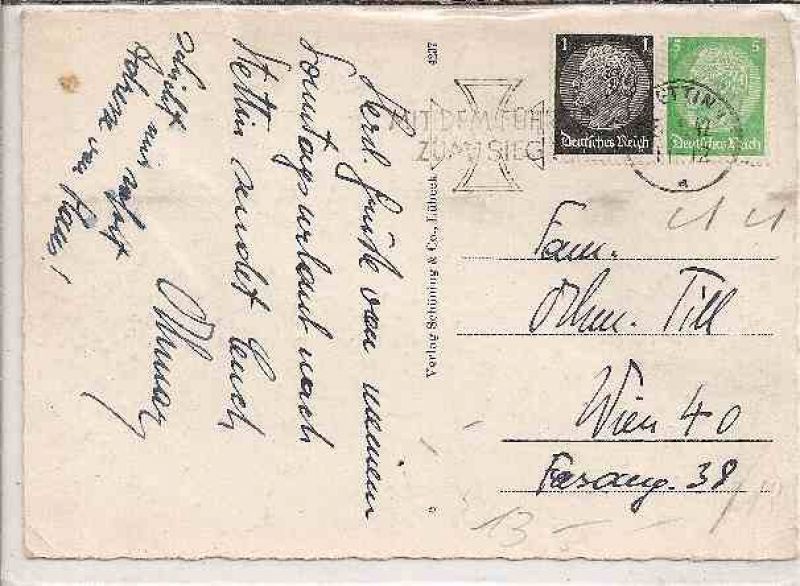 Herzl. Grüße von meinem
Sonntagsurlaub nach
Stettin sendet Euch
Othmar
4237
Verlag Schöning & Co., Lübeck
MIT DEM FÜH
ZUM SIEG
1 1
Deutsches Reich
5 5
Deutsches Reich
STETTIN
12
a
Fam.
Othm. Till
Wien 40
Fasang. 38
13 -